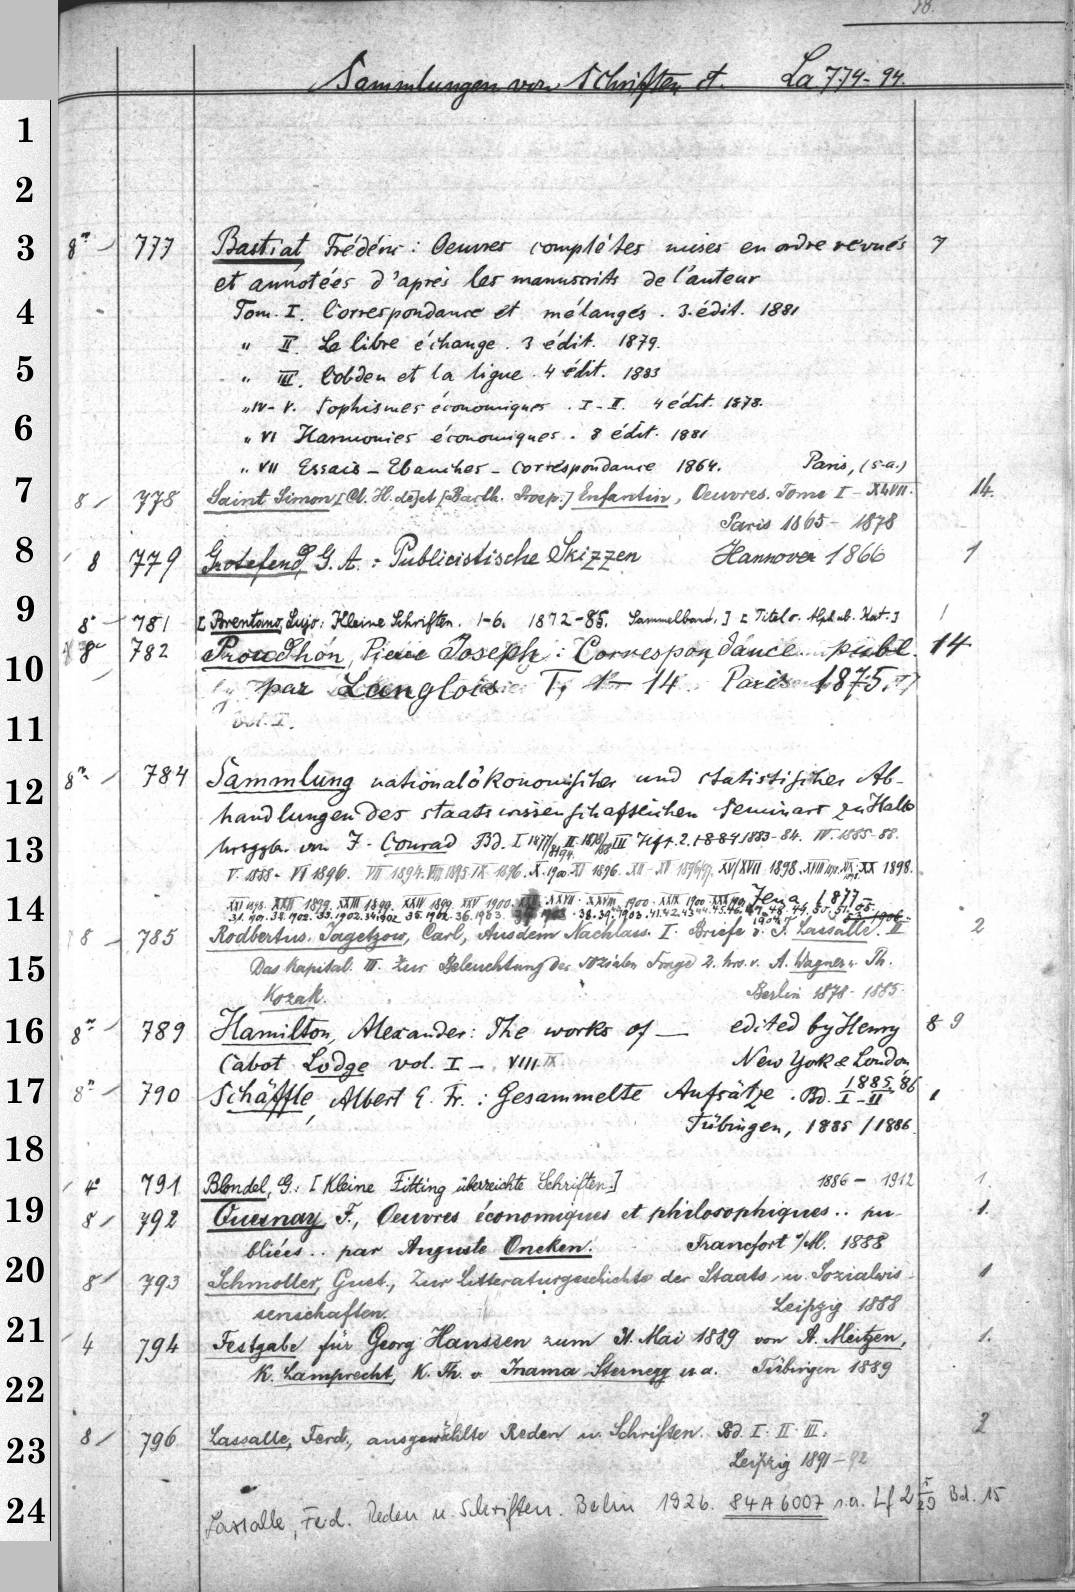 Sammlungen von Schriften et. La 774-94.
1
2
3 8° 777 Bastiat Frédéric: Oeuvres complètes mises en ordre revues 7
et annotées d'après les manuscrits de l'auteur
4 Tom. I. Correspondance et mélanges. 3. édit. 1881
„ II. Le libre échange. 3 édit. 1879.
5 „ III. Cobden et la ligue. 4 édit. 1883
„ IV-V. Sophismes économiques. I-II. 4 édit. 1878.
6 „ VI Harmonies économiques. 8 édit. 1881
„ VII Essais - Ebauches - correspondance 1864. Paris, (s.a.)
7 8 778 Saint Simon [Cl. H. de] et [Barth. Prosp.] Enfantin, Oeuvres. Tome I - XLVII. 14.
Paris 1865-1878
8 8 779 Grotefend, G. A.: Publicistische Skizzen Hannover 1866 1
9 8° 781 [Brentano, Lujo: Kleine Schriften. 1-6. 1872-85. Sammelband.] [Titel s. Alphab. Kat.] 1
10 8° 782 Proudhon, Pierre Joseph: Correspondance. publ. 14
par Langlois T. 1-14 Paris 1875.
11 Vol. I.
12 8° 784 Sammlung nationalökonomischer und statistischer Ab-
handlungen des staatswissenschaftlichen Seminars zu Halle
13 hrsgg. von J. Conrad Bd. I 1877/ II 1878/ III Heft. 2. 1884 1883-84. IV. 1885-88.
V. 1888- VI 1896. VII 1894. VIII 1895. IX 1896. X. 1900. XI 1896. XII - XV 1896/97. XV/XVII 1898. XX 1898.
14 Jena 1877
8 785 Rodbertus-Jagetzow, Carl, Aus dem Nachlass. I. Briefe v. F. Lassalle. II 2
15 Das Kapital. III. Zur Beleuchtung der sozialen Frage 2. hrs. v. A. Wagner u. Th.
Kozak. Berlin 1878-1885
16 8° 789 Hamilton, Alexander: The works of — edited by Henry 8 9
Cabot Lodge vol. I - VIII IX New York & London
17 8° 790 Schäffle, Albert E. Fr.: Gesammelte Aufsätze. Bd. I-II 1885/86 1
Tübingen, 1885/1886
18
4° 791 Blondel, G.: [Kleine Fitting überreichte Schriften.] 1886-1912 1.
19 8 792 Quesnay, F., Oeuvres économiques et philosophiques.. pu- 1.
bliées.. par Auguste Oncken. Francfort a/M. 1888
20 8 793 Schmoller, Gust., Zur Litteraturgeschichte der Staats- u. Sozialwis- 1
senschaften. Leipzig 1888
21 4 794 Festgabe für Georg Hanssen zum 31. Mai 1889 von A. Meitzen, 1.
K. Lamprecht, K. Th. v. Inama-Sternegg u.a. Tübingen 1889
22
23 8 796 Lassalle, Ferd., ausgewählte Reden u. Schriften. Bd. I. II. III. 2
Leipzig 1891-92
24 Lassalle, Ferd. Reden u. Schriften. Berlin 1926. 84 A 6007 s.a. Lf 2 5/29 Bd. 15